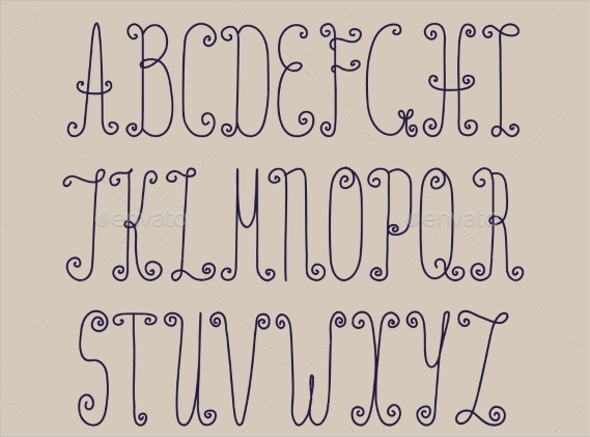 ABCDEFGHI
JKLMNOPQR
envato envato
STUVWXYZ